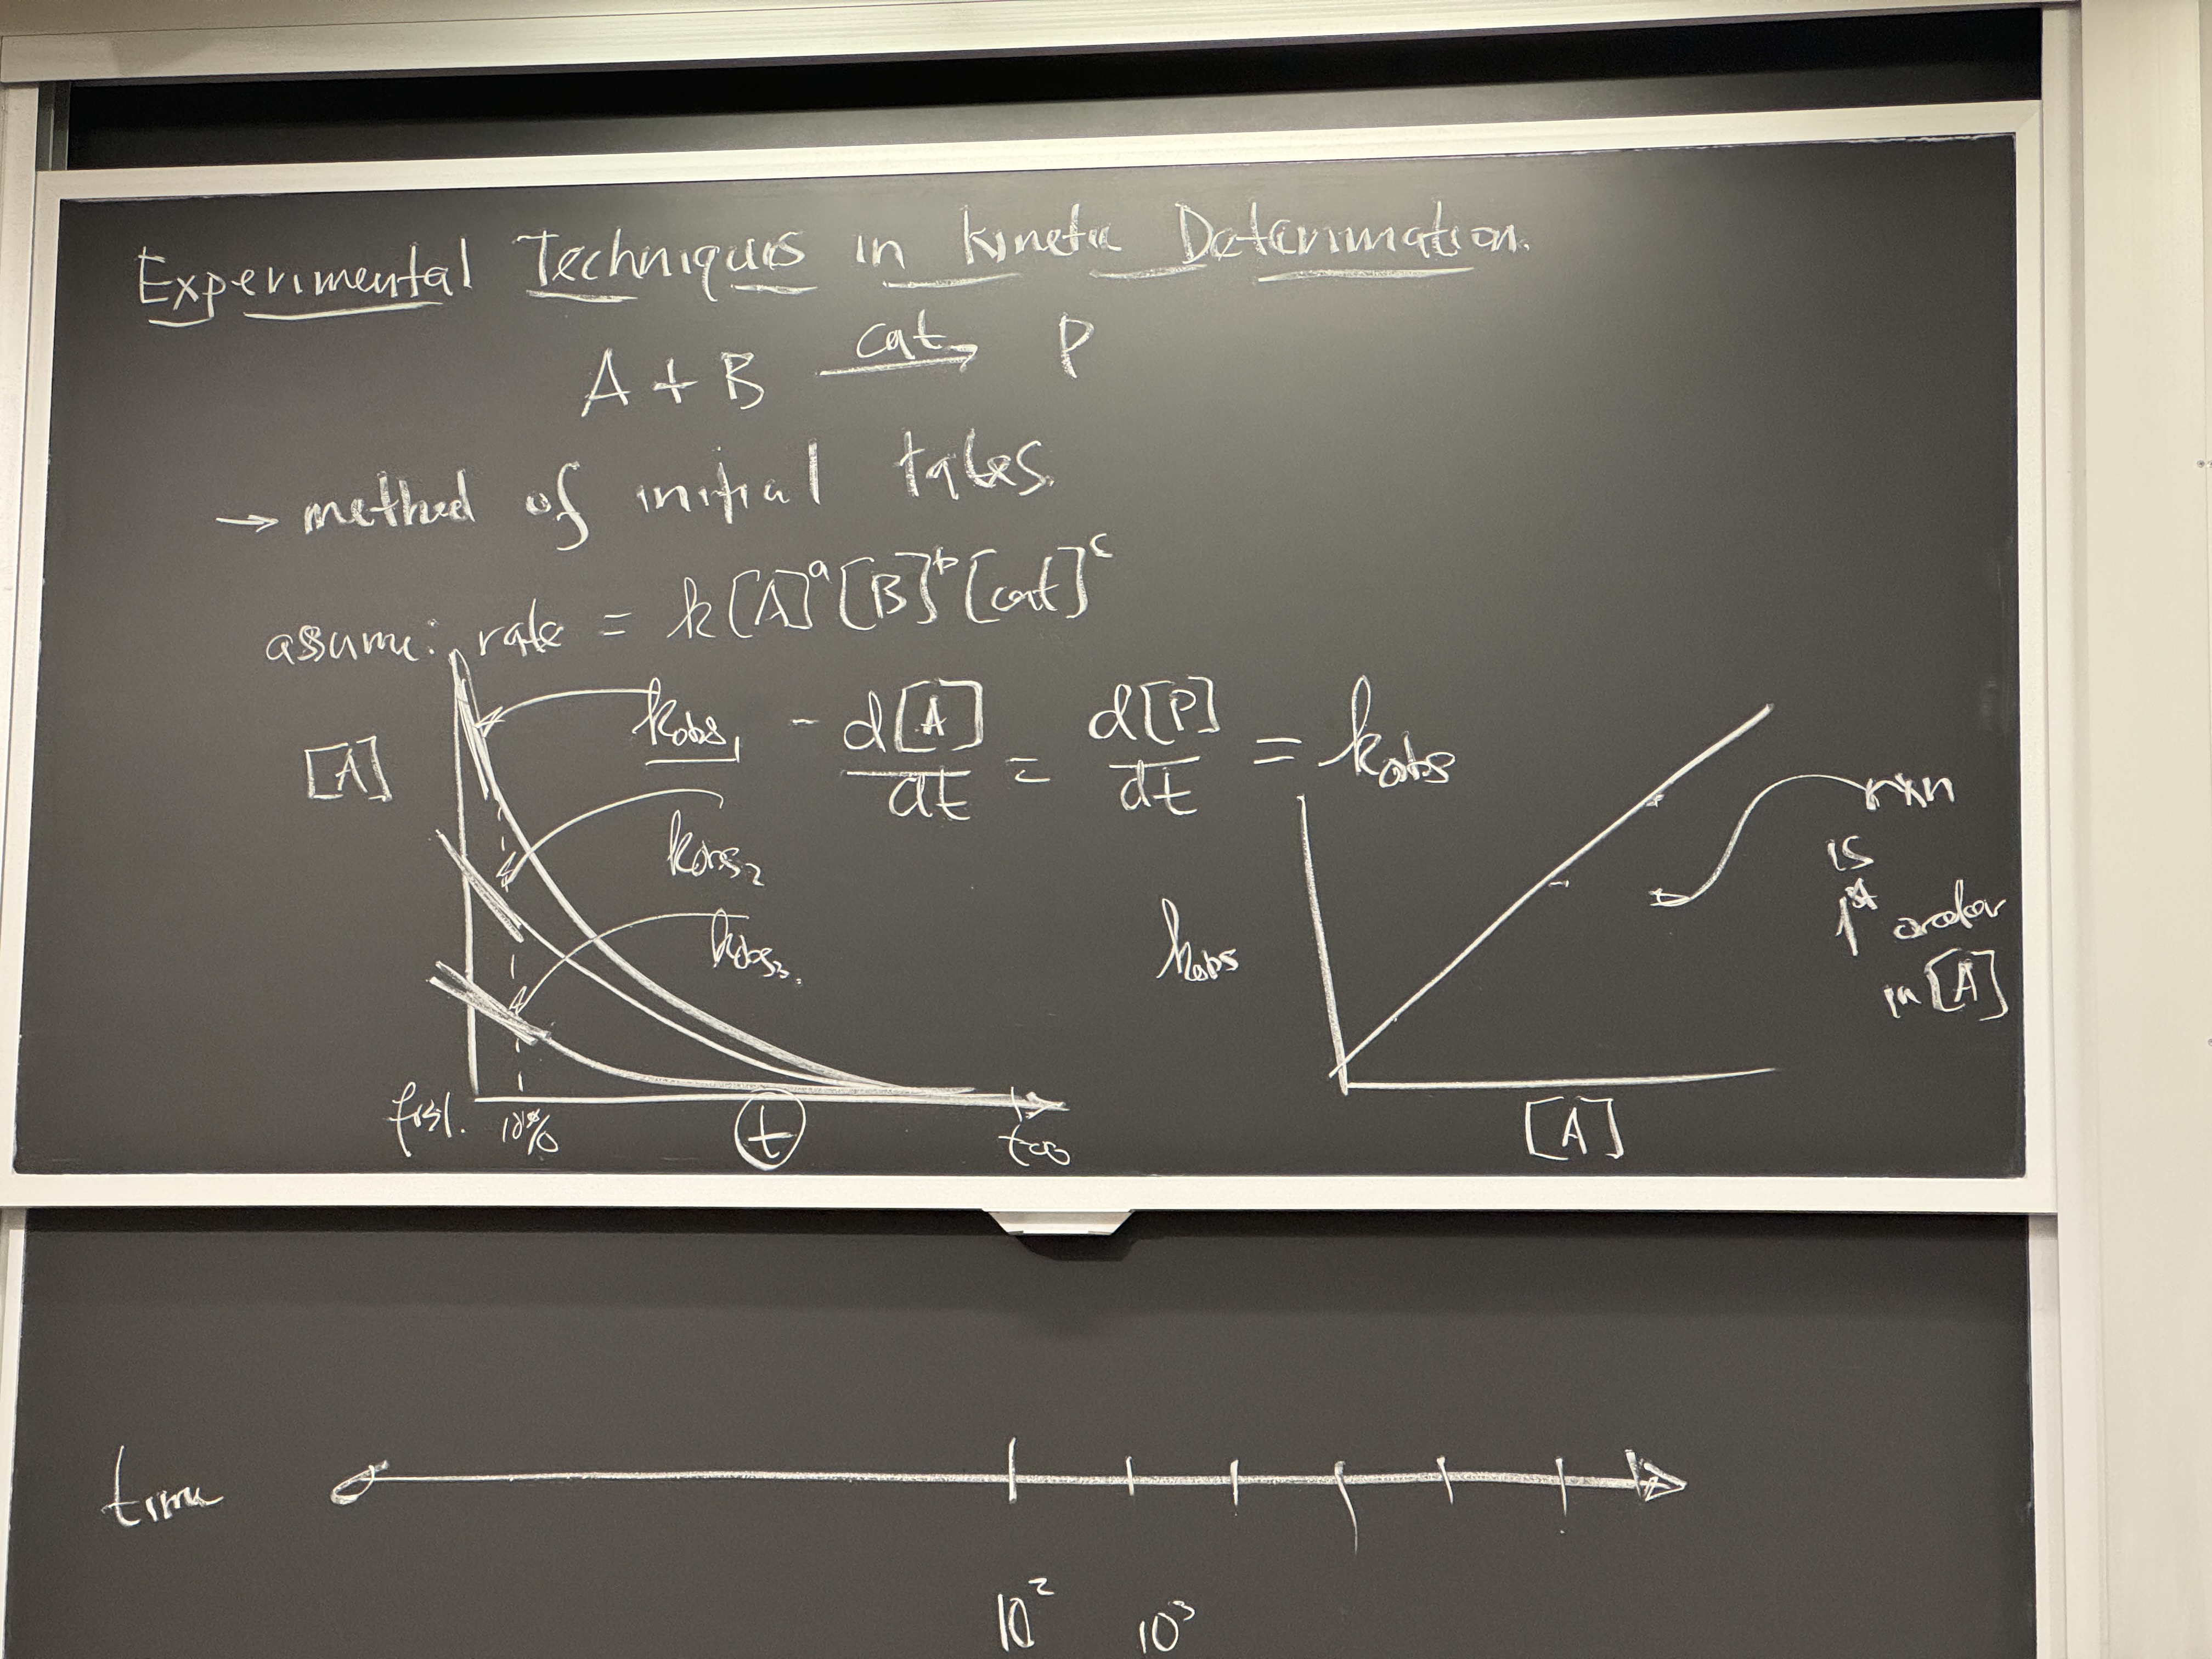 Experimental Techniques in Kinetic Determination.
A + B cat→ P
→ method of initial rates.
assume: rate = k[A]ᵃ[B]ᵇ[cat]ᶜ
[A]
kobs₁
- d[A]/dt = d[P]/dt = kobs
kobs₂
kobs₃.
first. 10%
t
t∞
kobs
[A]
rxn
is
1st order
in [A]
time
10² 10³